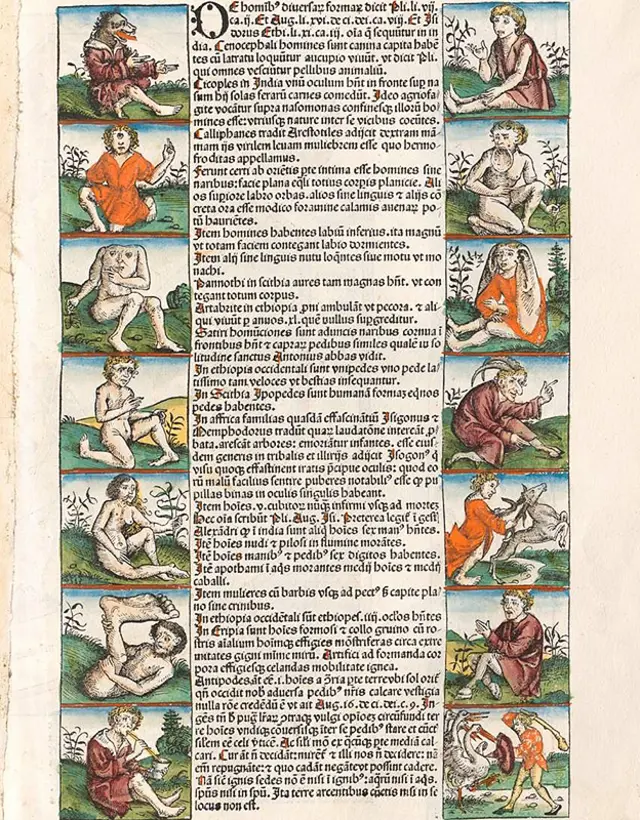 DE homībꝰ diuersaꝝ formaꝝ dicit Pli. li. vij.
ca. ij. Et Aug. li. xvi. de ci. dei. ca. viij. Et Isi
dorus Ethi. li. xi. ca. iij. oīa q̄ sequūtur in in
dia. Cenocephali homines sunt canina capita habē
tes cū latratu loquūtur aucupio viuūt. vt dicit Pli.
qui omnes vescūtur pellibus animaliū.
Cicoples in India vnū oculum hn̄t in fronte sup na
sum hij solas feraꝝ carnes comedūt. Ideo agriofa
gite vocātur supra nasomonas confinesqꝫ illoꝝ ho
mines esse: vtriusqꝫ nature inter se vicibus coeūtes.
Calliphanes tradit Arestotiles adijcit dextram mā
mam ijs virilem leuam muliebrem esse quo hermo
froditas appellamus.
Ferunt certi ab oriētis pte intima esse homines sine
naribus: facie plana eq̄li totius corpīs planicie. Ali
os supiore labro orbas. alios sine linguis & alijs cō
creta ora esse modico foramine calamis auenaꝝ po
tū haurietes.
Item homines habentes labiū inferius. ita magnū
vt totam faciem contegant labio dormientes.
Item alij sine linguis nutu loq̄ntes siue motu vt mo
nachi.
Pannothi in scithia aures tam magnas hn̄t. vt con
tegant totum corpus.
Artabrite in ethiopia pni ambulāt vt pecora. & ali
qui viuūt p annos. xl. quē nullus supgreditur.
Satiri homūciones sunt aduncis naribus cornua ī
frontibus hn̄t & capraꝝ pedibus similes qualē in so
litudine sanctus Antonius abbas vidit.
In ethiopia occidentali sunt vnipedes vno pede la/
tissimo tam veloces vt bestias insequantur.
In Scithia Ipopedes sunt humanā formaꝫ eq̄nos
pedes habentes.
In affrica familias quasdā effascinātiū Isigonus &
Memphodorus tradūt quaꝝ laudatōne intereāt p
bata. arescāt arbores: emoriātur infantes. esse eius/
dem generis in tribalis et illirijs adijcit Isogonꝰ q̄
visu quoqꝫ effastinent iratis p̄cipue oculis: quod eo
rū malū facilius sentire puberes notabilꝰ esse ꝙ pu
pillas binas in oculis singulis habeant.
Item hoīes. v. cubitoꝝ nūqꝫ infirmi vsqꝫ ad mortē
Hec oīa scribūt Pli. Aug. Isi. Preterea legiꝰ ī gest
Alexādri ꝙ ī india sunt aliq̄ hoīes sex manꝰ hn̄tes.
Itē hoīes nudi & pilosi in flumine morātes.
Itē hoīes manibꝰ & pedibꝰ sex digitos habentes.
Itē apothami ī aq̄s morantes medij hoīes & medij
caballi.
Item mulieres cū barbis vsqꝫ ad pectꝰ ſꝫ capite pla/
no sine crinibus.
In ethiopia occidētali sūt ethiopes. iiij. oclos hn̄tes
In Eripia sunt hoīes formosi & collo gruino cū ro/
stris aīalium hoīmqꝫ effigies mōstriferas circa extre
mitates gigni mīme mirū. Artifici ad formanda cor
pora effigiesqꝫ celandas mobilitate ignea.
Antipodes āt eē. i. hoīes a ꝯ̄ria pte terre vbi sol orit̄
qn̄ occidit nob̄ aduersa pedibꝰ nr̄is calcare vestigia
nulla rōe credēdū ē vt ait Aug. 16. de ci. dei. c. 9. In
gēs tn̄ h̄ pugͣ lr̄aꝝ ꝯtraqꝫ vulgi opīoēs circūfundi ter
re hoīes vndiqꝫ cōuersisqꝫ īter se pedibꝰ stare et cūctꝭ
silem eē celi v̓ticē. Ac sili mō ex q̄cūqꝫ pte mediā cal
cari. Cur āt n̄ decidāt: mirēt̄ & illi nos n̄ decidere: nā
em̄ repugnāte: & quo cadāt negāte vt possint cadere.
Nā siē ignis sedes nō ē nisi ī ignibꝰ: aq̄rū nisi ī aq̄s.
spūs nisi in spū. Ita terre arcentibus cūctis nisi in se
locus non est.